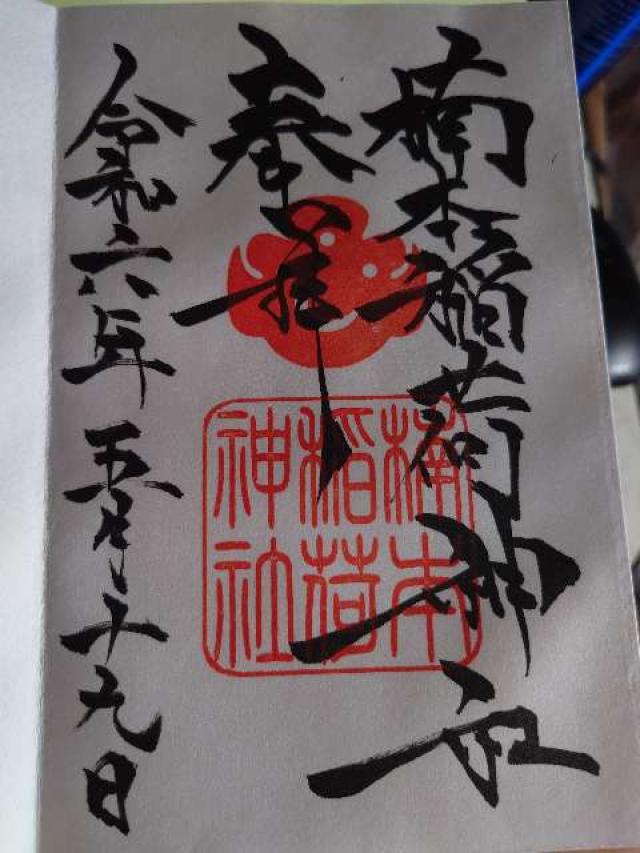 楠本稲荷神社
奉拝
楠本
稲荷
神社
令和六年五月十九日